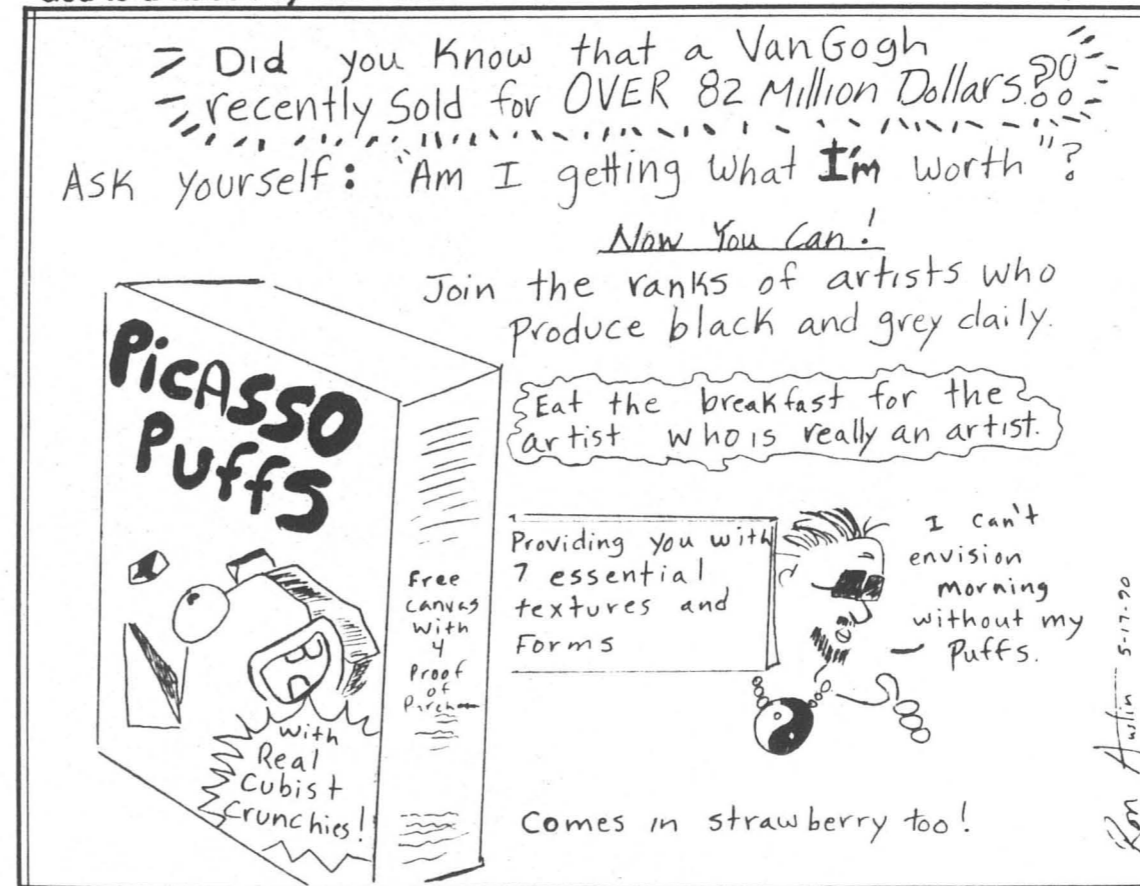 Did you know that a Van Gogh
recently sold for OVER 82 Million Dollars?!
Ask yourself: "Am I getting what I'm worth"?
Now You Can!
Join the ranks of artists who
Produce black and grey daily.
Eat the breakfast for the
artist who is really an artist.
PicASSO
PuffS
With
Real
Cubist
Crunchies!
Free
canvas
with
4
Proof
of
Providing you with
7 essential
textures and
Forms
I can't
envision
morning
without my
Puffs.
Comes in strawberry too!
Ron Austin 5-17-90